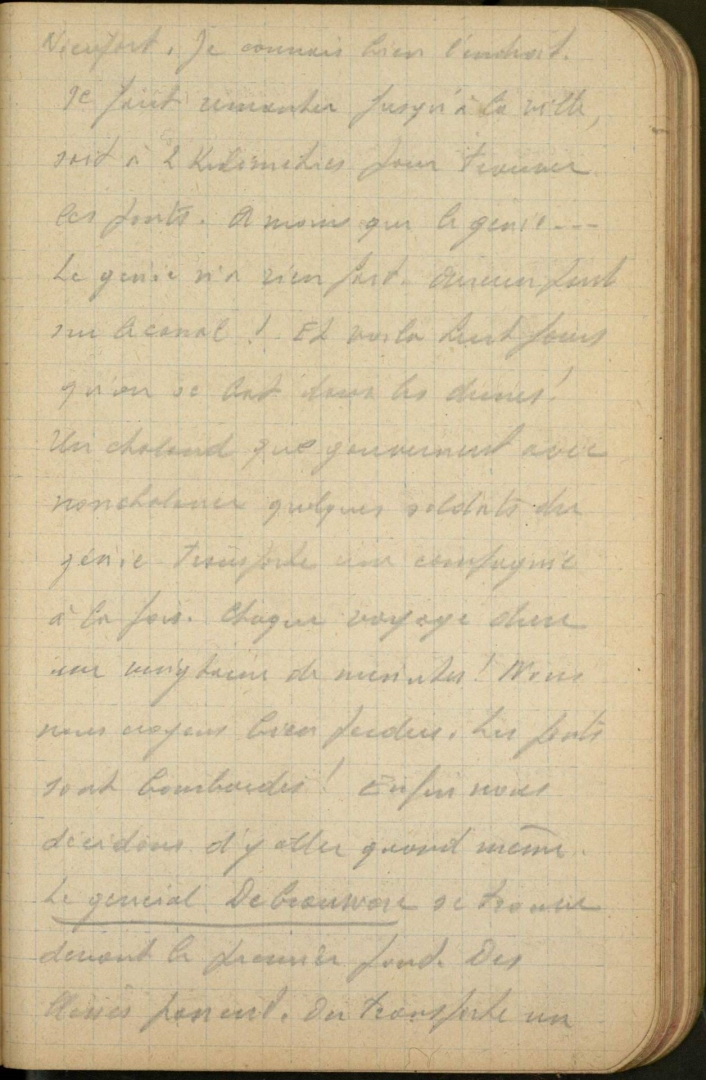 Nieuport. Je connais bien l'endroit.
Il faut remonter jusqu'à la ville,
soit à 2 Kilomètres pour trouver
les ponts. A moins que le génie---
Le génie n'a rien fait. Aucun pont
sur le canal ! Et voilà huit jours
qu'on se bat dans les dunes !
Un chaland que gouvernent avec
nonchalance quelques soldats du
génie transporte une compagnie
à la fois. Chaque voyage dure
une vingtaine de minutes ! Nous
nous croyons bien perdus. Les ponts
sont bombardés ! Enfin nous
décidons d'y aller quand même.
Le général De Ceuninck se trouve
devant le premier pont. Des
blessés passent. On transporte un